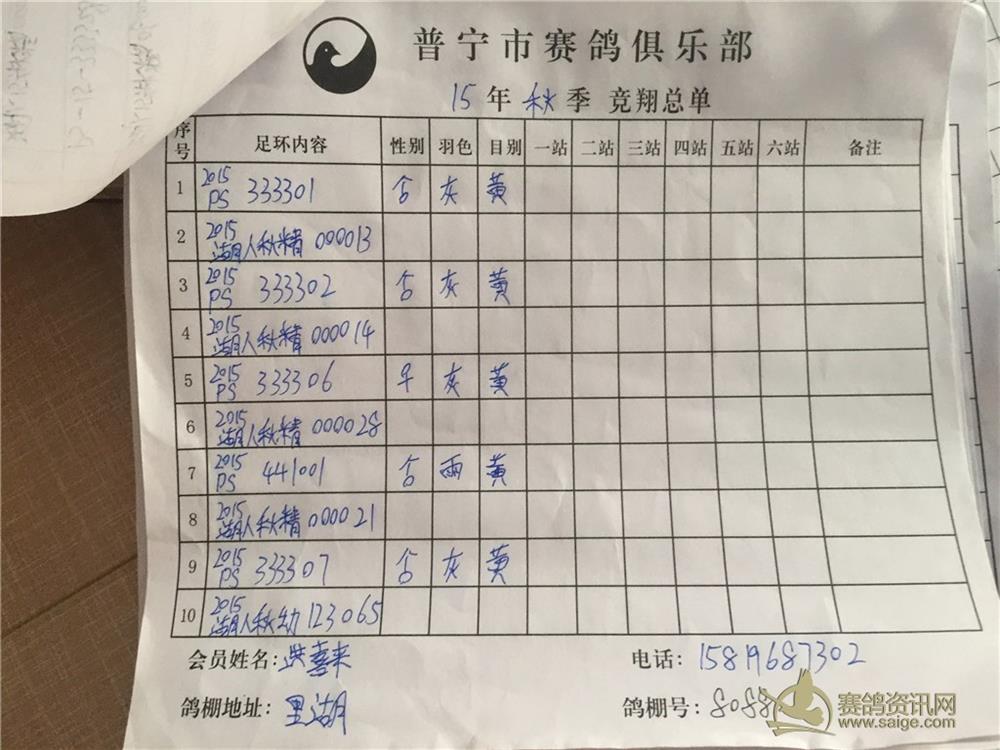 普宁市赛鸽俱乐部
15年 秋季 竞翔总单
序号 足环内容 性别 羽色 目别 一站 二站 三站 四站 五站 六站 备注
1 2015 PS 333301 合 灰 黄
2 2015 湖人秋精 000013
3 2015 PS 333302 合 灰 黄
4 2015 湖人秋精 000014
5 2015 PS 333306 灰 黄
6 2015 湖人秋精 000028
7 2015 PS 441001 合 雨 黄
8 2015 湖人秋精 000021
9 2015 PS 333307 合 灰 黄
10 2015 湖人秋幼 123065
会员姓名: 洪喜来 电话: 15819687302
鸽棚地址: 里湖 鸽棚号: 8088
赛鸽资讯网
www.saige.com